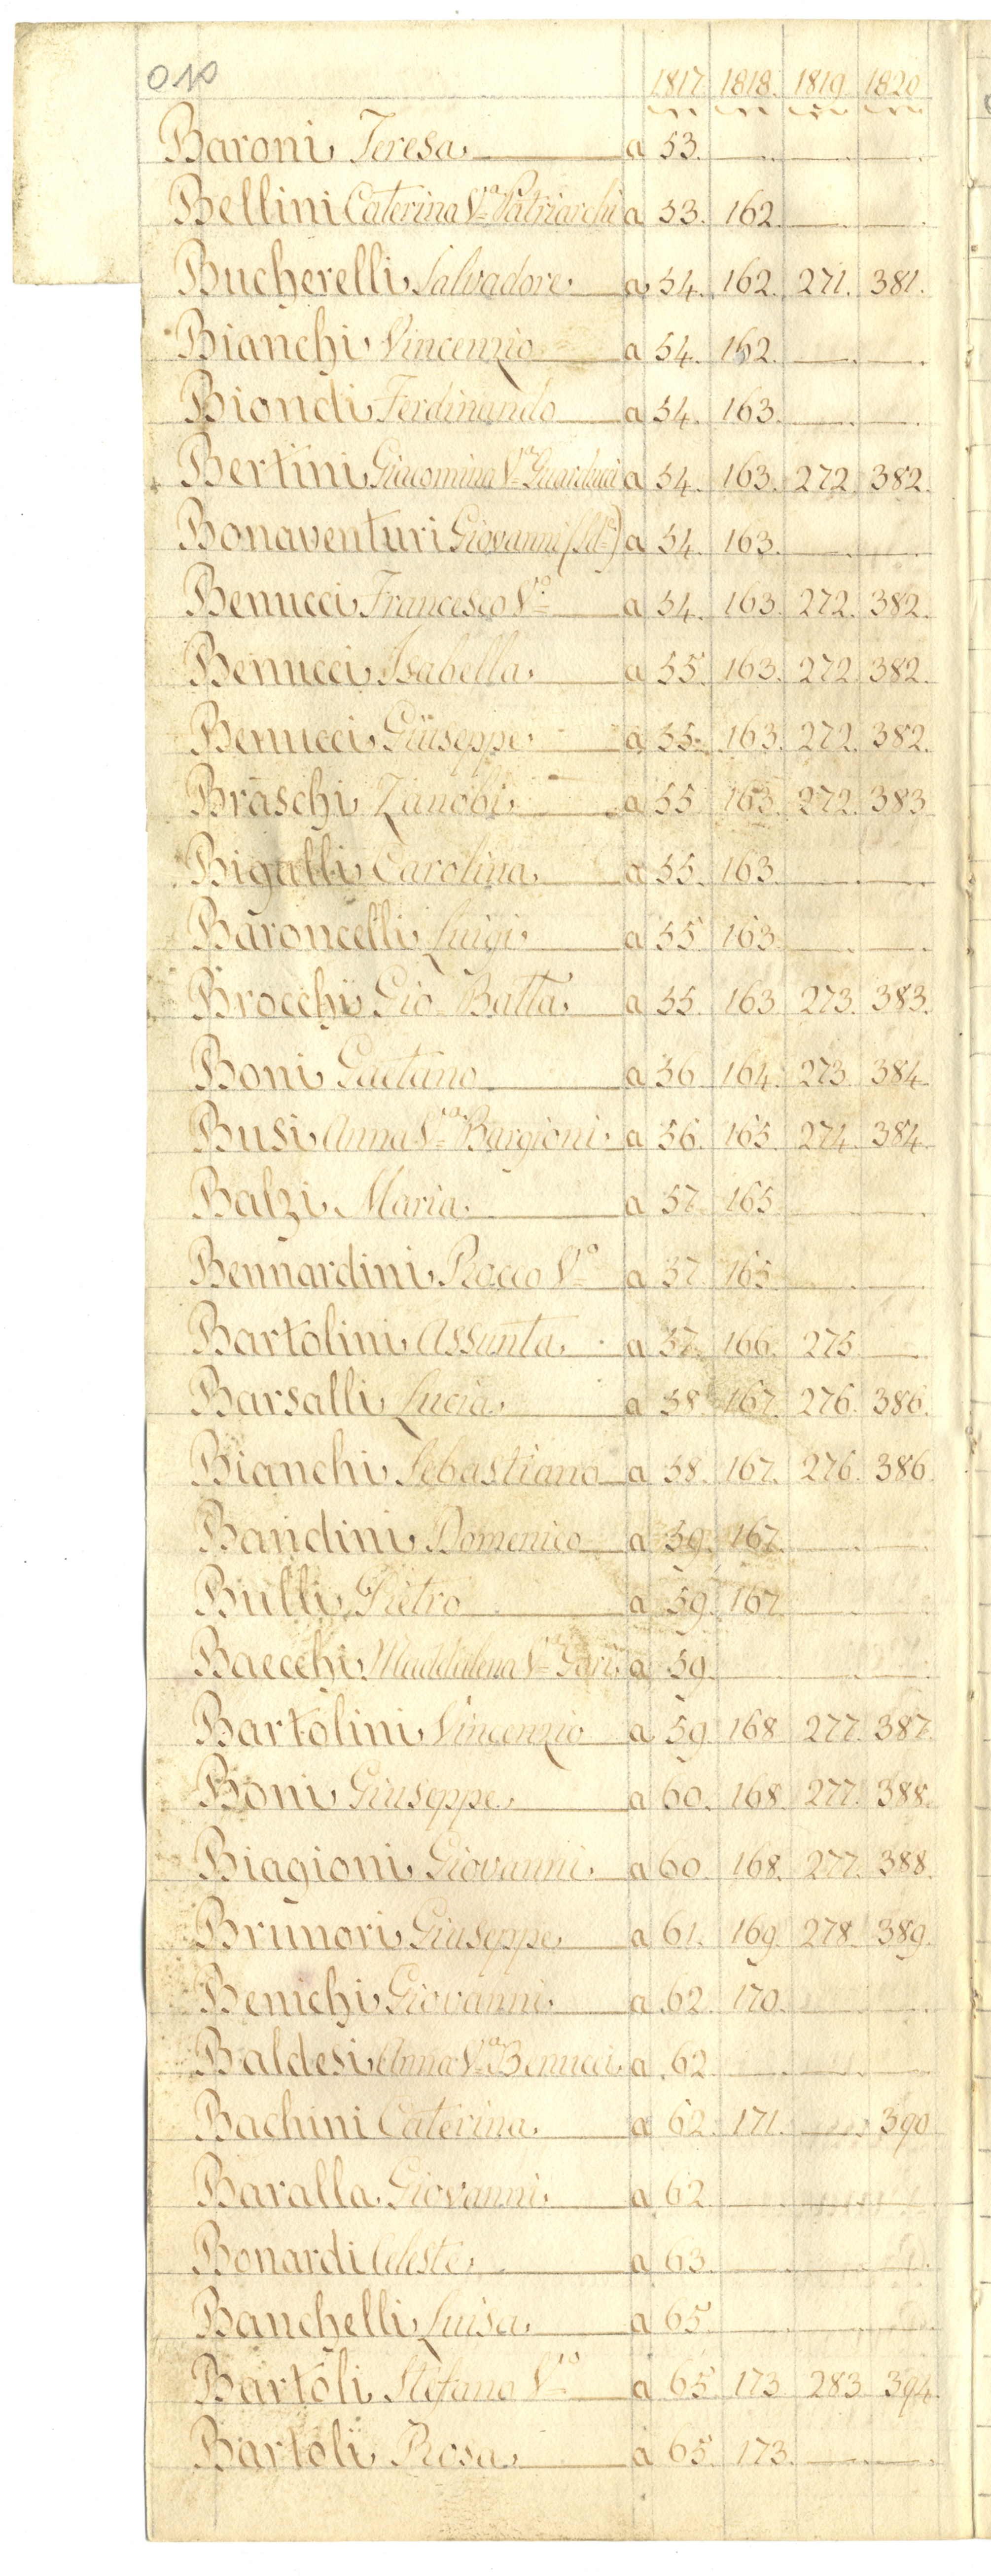 1817 1818. 1819. 1820
Baroni Teresa a 53.
Bellini Caterina Va. Patriarchi a 53. 162
Bucherelli Salvadore a 54. 162. 271. 381.
Bianchi Vincenzio a 54. 162
Biondi Ferdinando a 54. 163
Bertini Giacomina Va. Guarducci a 54. 163. 272. 382.
Bonaventuri Giovanni a 54. 163.
Benucci Francesco Vo. a 54. 163. 272. 382.
Benucci Isabella a 55. 163. 272. 382.
Benucci Giuseppe a 55. 163. 272. 382.
Braschi Zanobi a 55 163. 272. 383
Bigalli Carolina a 55. 163
Baroncelli Luigi a 55 163.
Brocchi Gio Batta a 55. 163 273. 383.
Boni Gaetano a 56 164. 273. 384
Busi Anna Va. Bargioni a 56. 165. 274. 384.
Balzi Maria a 57. 165
Bennardini Rocco Vo. a 57. 165
Bartolini Assunta a 57. 166. 275
Barsalli Lucia a 58. 167. 276. 386.
Bianchi Sebastiano a 58. 167. 276. 386
Bandini Domenico a 59. 167.
Bulli Pietro a 59. 167
Baecchi Maddalena Va. Gori a 59.
Bartolini Vincenzio a 59. 168 277. 387.
Boni Giuseppe a 60. 168. 277. 388.
Biagioni Giovanni a 60. 168. 277. 388.
Brunori Giuseppe a 61. 169. 278. 389.
Benichi Giovanni a 62. 170.
Baldesi Anna Va. Benucci a 62
Bachini Caterina a 62. 171. 390
Baralla Giovanni a 62
Bonardi Celeste a 63.
Banchelli Luisa a 65.
Bartoli Stefano Vo. a 65 173 283 394.
Bartoli Rosa a 65. 173.